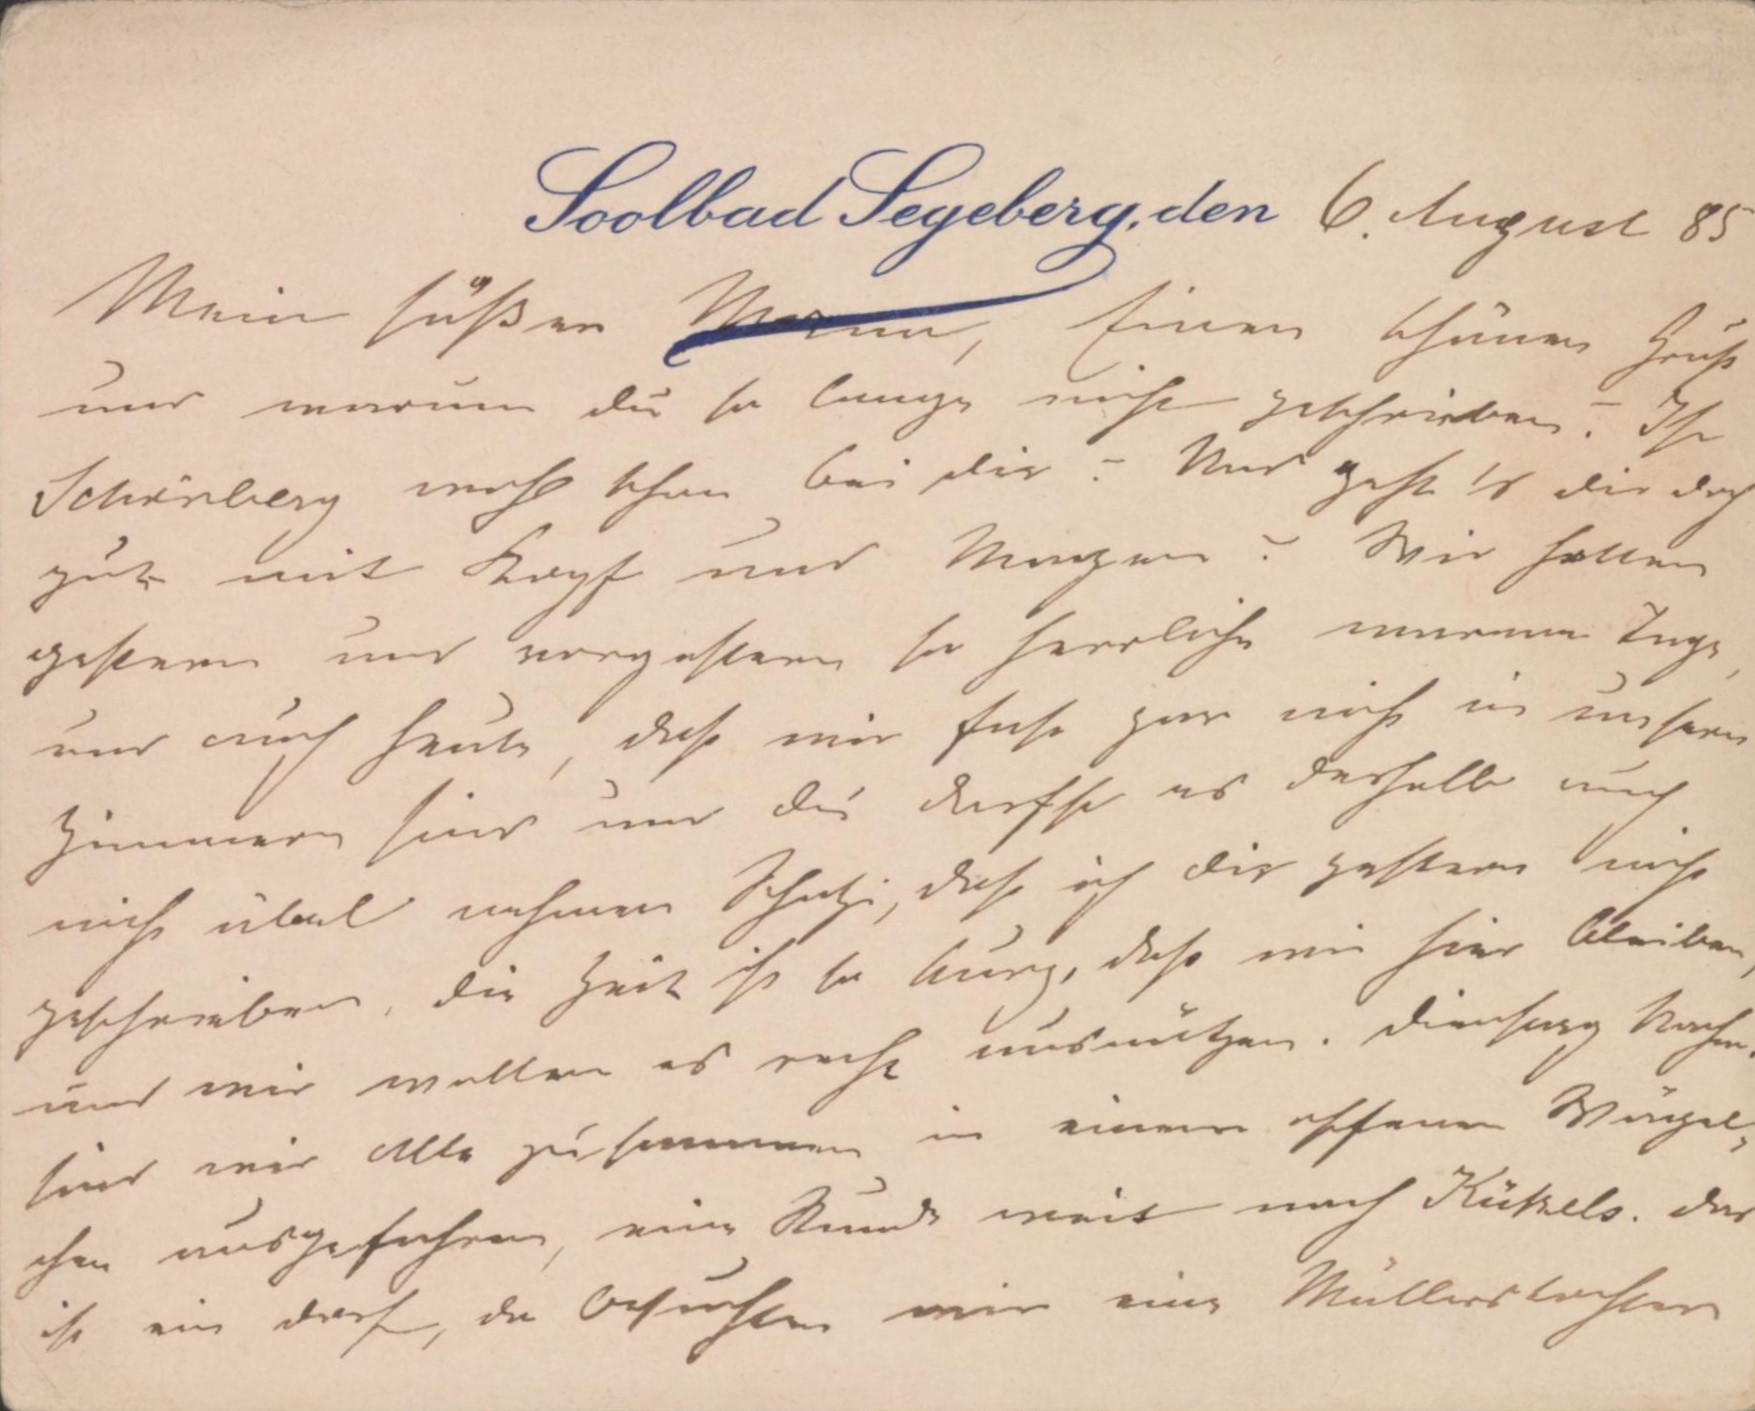 Soolbad Segeberg, den 6. August 85
Mein süßer Mann, Einen schönen Gruß
und warum du so lange nicht geschrieben? Ist
Schönberg wohl schon bei dir? Und geht's dir doch
gut mit Kopf und Magen? Wir hatten
gestern und vorgestern so herrliche warme Tage,
und auch heute, daß wir fast gar nicht in unsern
Zimmern sind und du darfst es deshalb auch
nicht übel nehmen Schatzi, daß ich dir gestern nicht
geschrieben, die Zeit ist so kurz, daß wir hier bleiben,
und wir wollen es recht ausnützen. Dienstag Nachm.
sind wir Alle zusammen in einem offenen Wägel-
chen ausgefahren, eine Stunde weit nach Kükels. Das
ist ein Dorf, da besuchten wir eine Müllerstochter